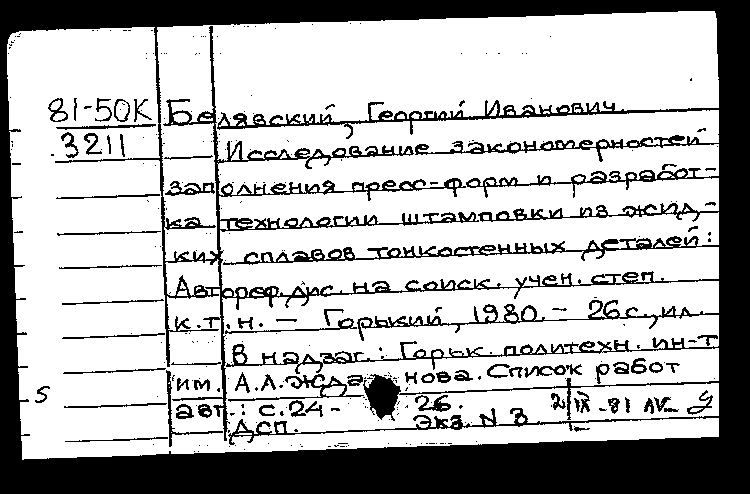 81-50К Белявский, Георгий Иванович.
3211 Исследование закономерностей
заполнения пресс-форм и разработ-
ка технологии штамповки из жид-
ких сплавов тонкостенных деталей:
Автореф. дис. на соиск. учен. степ.
к.т.н. – Горький, 1980. – 26 с., ил.
В надзаг.: Горьк. политехн. ин-т
им. А.А. Жданова. Список работ
авт.: с. 24-26.
ДСП. Экз. N 3 2/IX-81
S